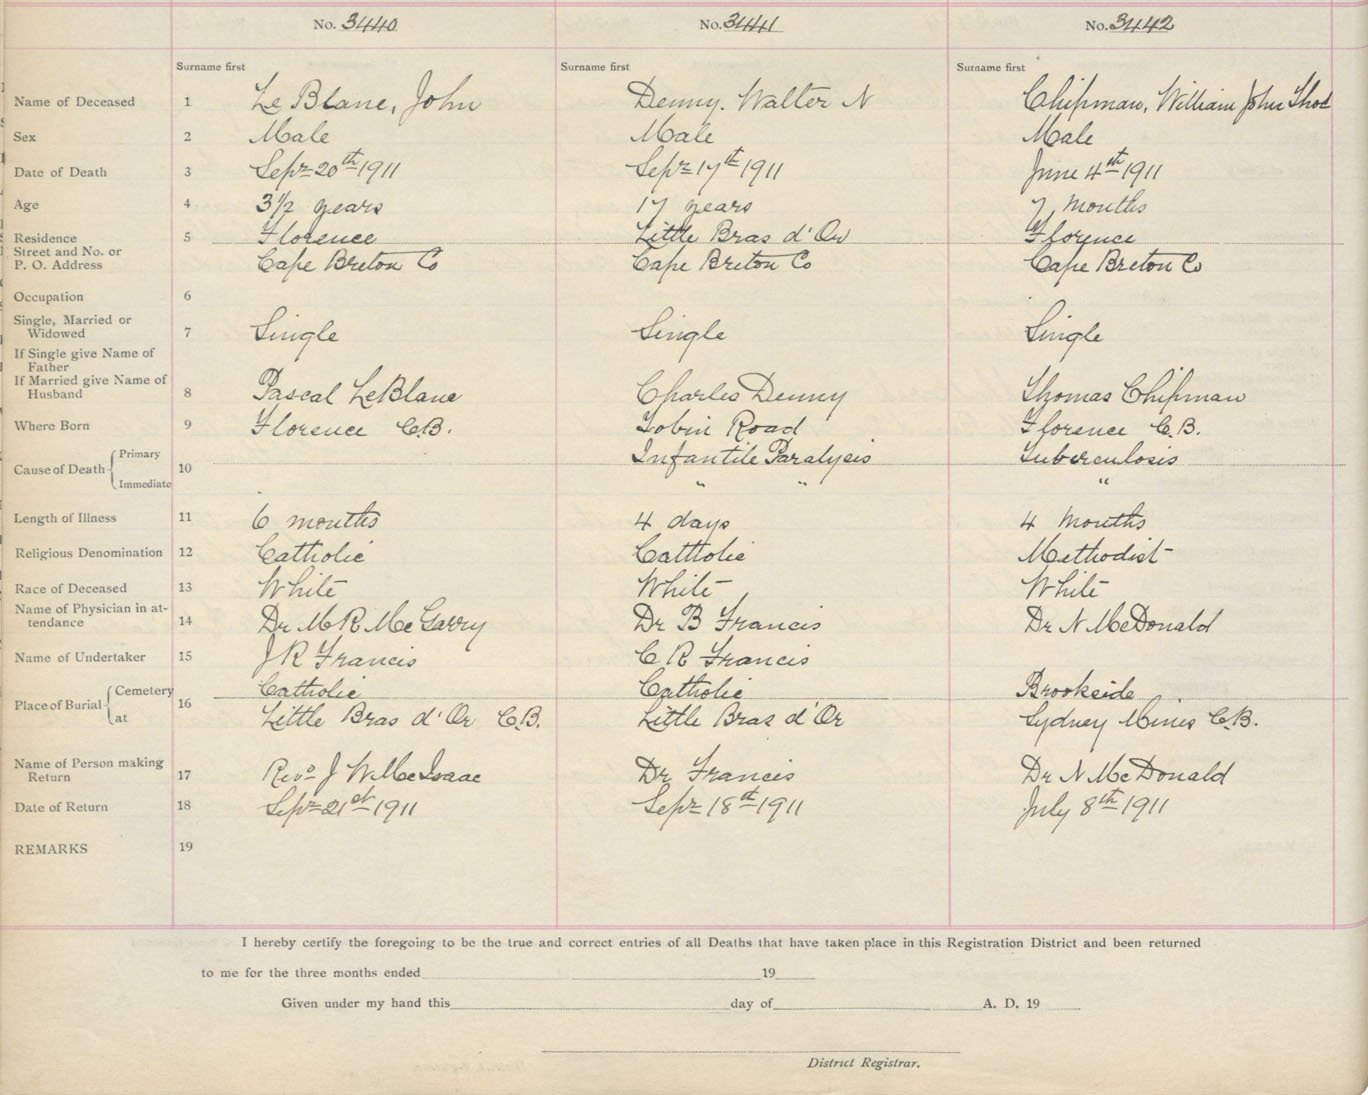 No. 3440 No. 3441 No. 3442
Surname first Surname first Surname first
Name of Deceased 1 Le Blanc, John Denny. Walter N Chipman, William John Thos
Sex 2 Male Male Male
Date of Death 3 Sepr 20th 1911 Sepr 17th 1911 June 4th 1911
Age 4 3½ years 17 years 7 months
Residence 5 Florence Little Bras d'Or Florence
Street and No. or
P. O. Address Cape Breton Co Cape Breton Co Cape Breton Co
Occupation 6
Single, Married or
Widowed 7 Single Single Single
If Single give Name of
Father
If Married give Name of
Husband 8 Pascal LeBlanc Charles Denny Thomas Chipman
Where Born 9 Florence C.B. Tobin Road Florence C.B.
Cause of Death Primary 10 Infantile Paralysis Tuberculosis
Immediate " " "
Length of Illness 11 6 months 4 days 4 months
Religious Denomination 12 Catholic Catholic Methodist
Race of Deceased 13 White White White
Name of Physician in at-
tendance 14 Dr M R McGarry Dr B Francis Dr N McDonald
Name of Undertaker 15 J R Francis C R Francis
Place of Burial Cemetery 16 Catholic Catholic Brookside
at Little Bras d'Or C.B. Little Bras d'Or Sydney Mines C.B.
Name of Person making
Return 17 Revd J W McIsaac Dr Francis Dr N McDonald
Date of Return 18 Sepr 21st 1911 Sepr 18th 1911 July 8th 1911
REMARKS 19
I hereby certify the foregoing to be the true and correct entries of all Deaths that have taken place in this Registration District and been returned
to me for the three months ended 19
Given under my hand this day of A. D. 19
District Registrar.